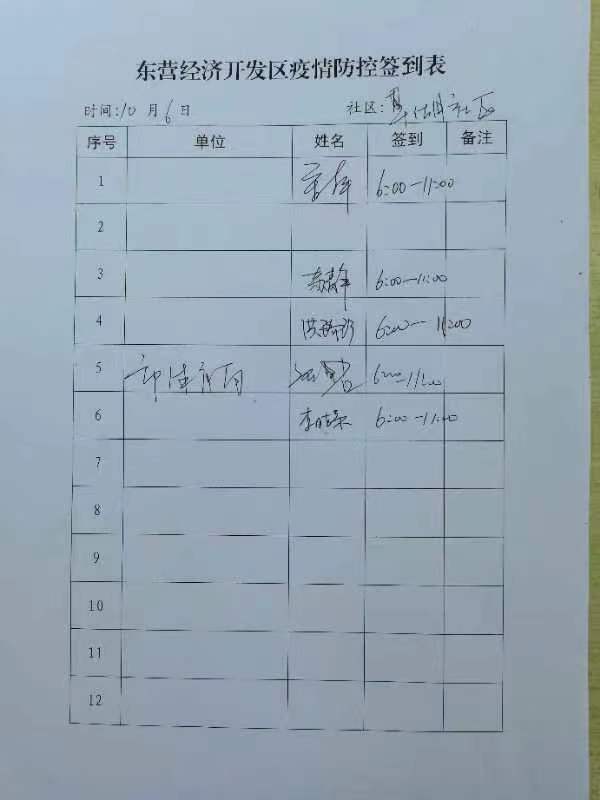 东营经济开发区疫情防控签到表
时间:10 月 6 日 社区: 社区
序号 单位 姓名 签到 备注
1 6:00—11:00
2
3 6:00—11:00
4 6:00—11:00
5 6:00—11:00
6 李 6:00—11:00
7
8
9
10
11
12